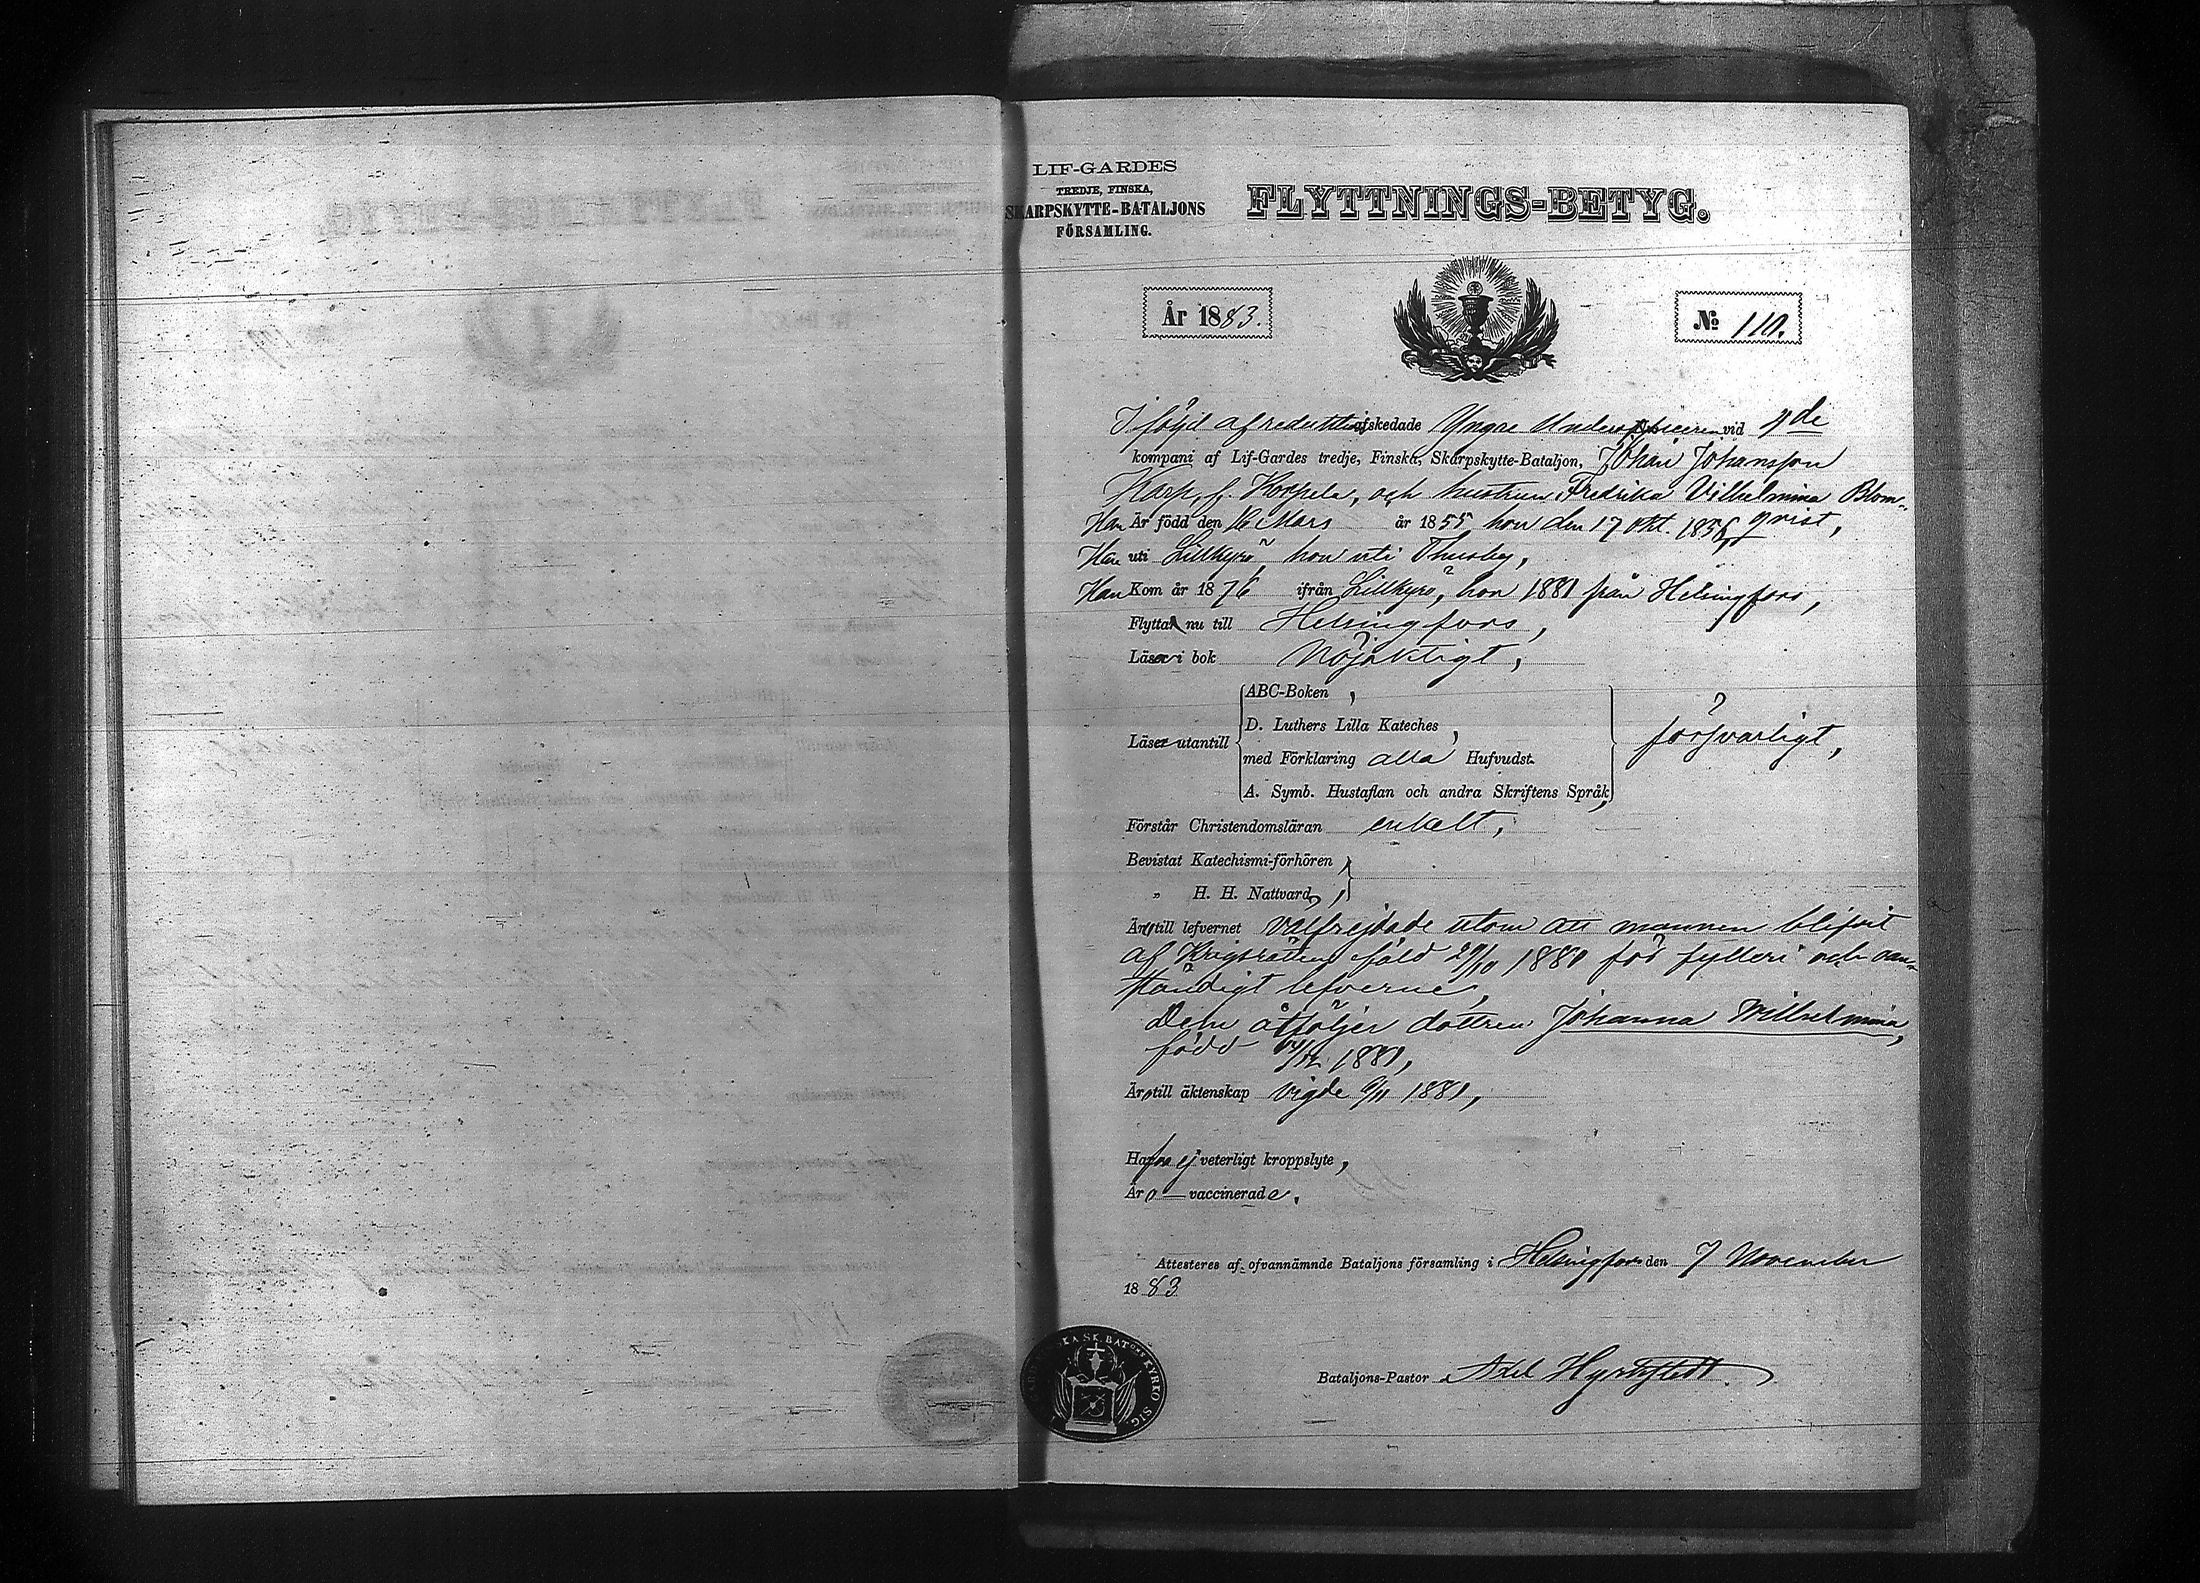 LIF-GARDES
TREDJE, FINSKA,
SKARPSKYTTE-BATALJONS
FÖRSAMLING.
FLYTTNINGS-BETYG.
År 1883.
№ 110.
I följd af reduktion afskedade Yngre Underofficeren vid 4de
kompani af Lif-Gardes tredje, Finska, Skarpskytte-Bataljon, Johan Johansson
Karp, f. Korpela, och hustrun Fredrika Vilhelmina Blom-
Han Är född den 16 Mars år 1855 hon den 17 Okt. 1856, qvist,
Han uti Lillkyro, hon uti Thusby,
Han Kom år 1876 ifrån Lillkyro, hon 1881 från Helsingfors,
Flytta nu till Helsingfors,
Läsa i bok Nöjaktigt,
ABC-Boken,
D. Luthers Lilla Kateches,
Läsa utantill
med Förklaring alla Hufvudst.
försvarligt,
A. Symb. Hustaflan och andra Skriftens Språk,
Förstår Christendomsläran enkelt,
Bevistat Katechismi-förhören,
„ H. H. Nattvard,
Äro till lefvernet välfrejdade utom att mannen blifvit
af Krigsrätten fäld 29/10 1880 för fylleri och oan-
ständigt lefverne,
Dem åtföljer dottren Johanna Wilhelmina,
född /12 1881,
Äro till äktenskap vigde 9/11 1881,
Hafva ej veterligt kroppslyte,
Äro — vaccinerade.
Attesteres af ofvannämnde Bataljons församling i Helsingfors den 7 November
1883
SKA SK. BAT:ONS KYRKO SIG.
Bataljons-Pastor Axel Hyrckstedt